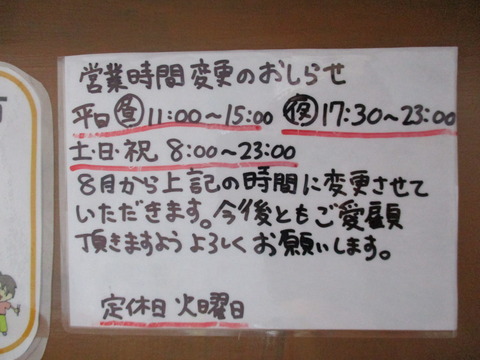 営業時間変更のおしらせ
平日 昼 11:00～15:00 夜 17:30～23:00
土・日・祝 8:00～23:00
8月から上記の時間に変更させて
いただきます。今後ともご愛顧
頂きますようよろしくお願いします。
定休日 火曜日